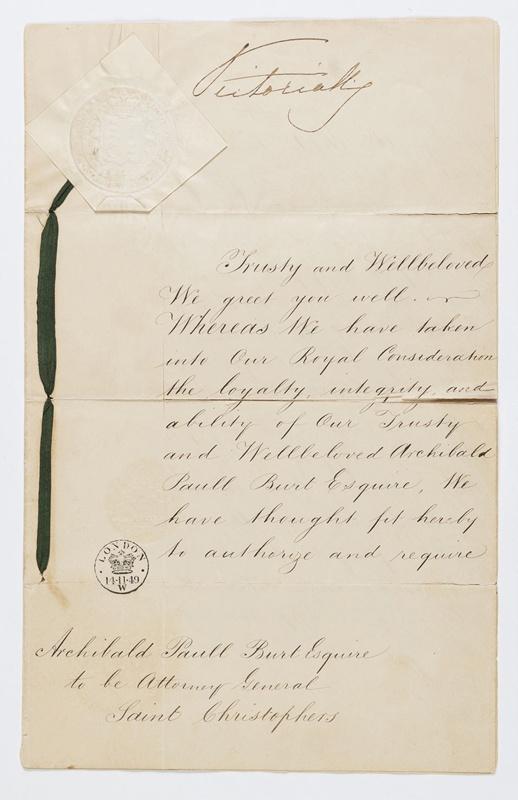 Victoria R
Trusty and Wellbeloved
We greet you well.
Whereas We have taken
into Our Royal Consideration
the loyalty, integrity, and
ability of Our Trusty
and Wellbeloved Archibald
Paull Burt Esquire, We
have thought fit hereby
to authorize and require
LONDON
14·11·49
W
Archibald Paull Burt Esquire
to be Attorney General
Saint Christophers